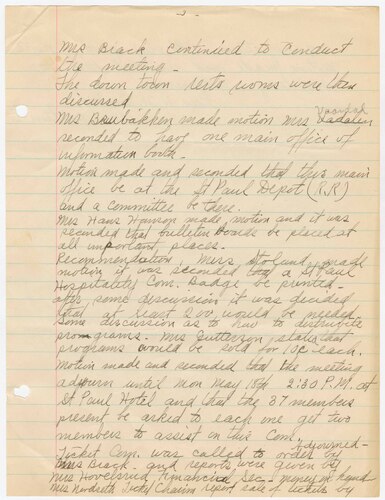 Mrs Brack continued to conduct
the meeting -
The down town rests rooms were then
discussed
Mrs Brubakken made motion Mrs
seconded to have one main office of
information booth -
Motion made and seconded that this main
office be at the St Paul Depot (R.R)
and a committee be there.
Mrs Hans Hanson made, motion and it was
seconded that bulletin boards be placed at
all important places.
Recommendation, Miss made
motion it was seconded that a St Paul
Hospitality Com. Badge be printed -
after some discussion it was decided
that at least 200 would be needed.
Some discussion as to how to distribute
programs. Mrs Gutterson stated that
programs would be sold for 10¢ each.
Motion made and seconded that the meeting
adjourn until Mon May 18th 2:30 P.M. at
St Paul Hotel and that the 37 members
present be asked to each one get two
members to assist in this Com.
adjourned -
Ticket Com. was called to order by
Mrs Brack - and reports were given by
Mrs Financial Sec - money on hand
Mrs Ticket Chairm report sale of tickets by